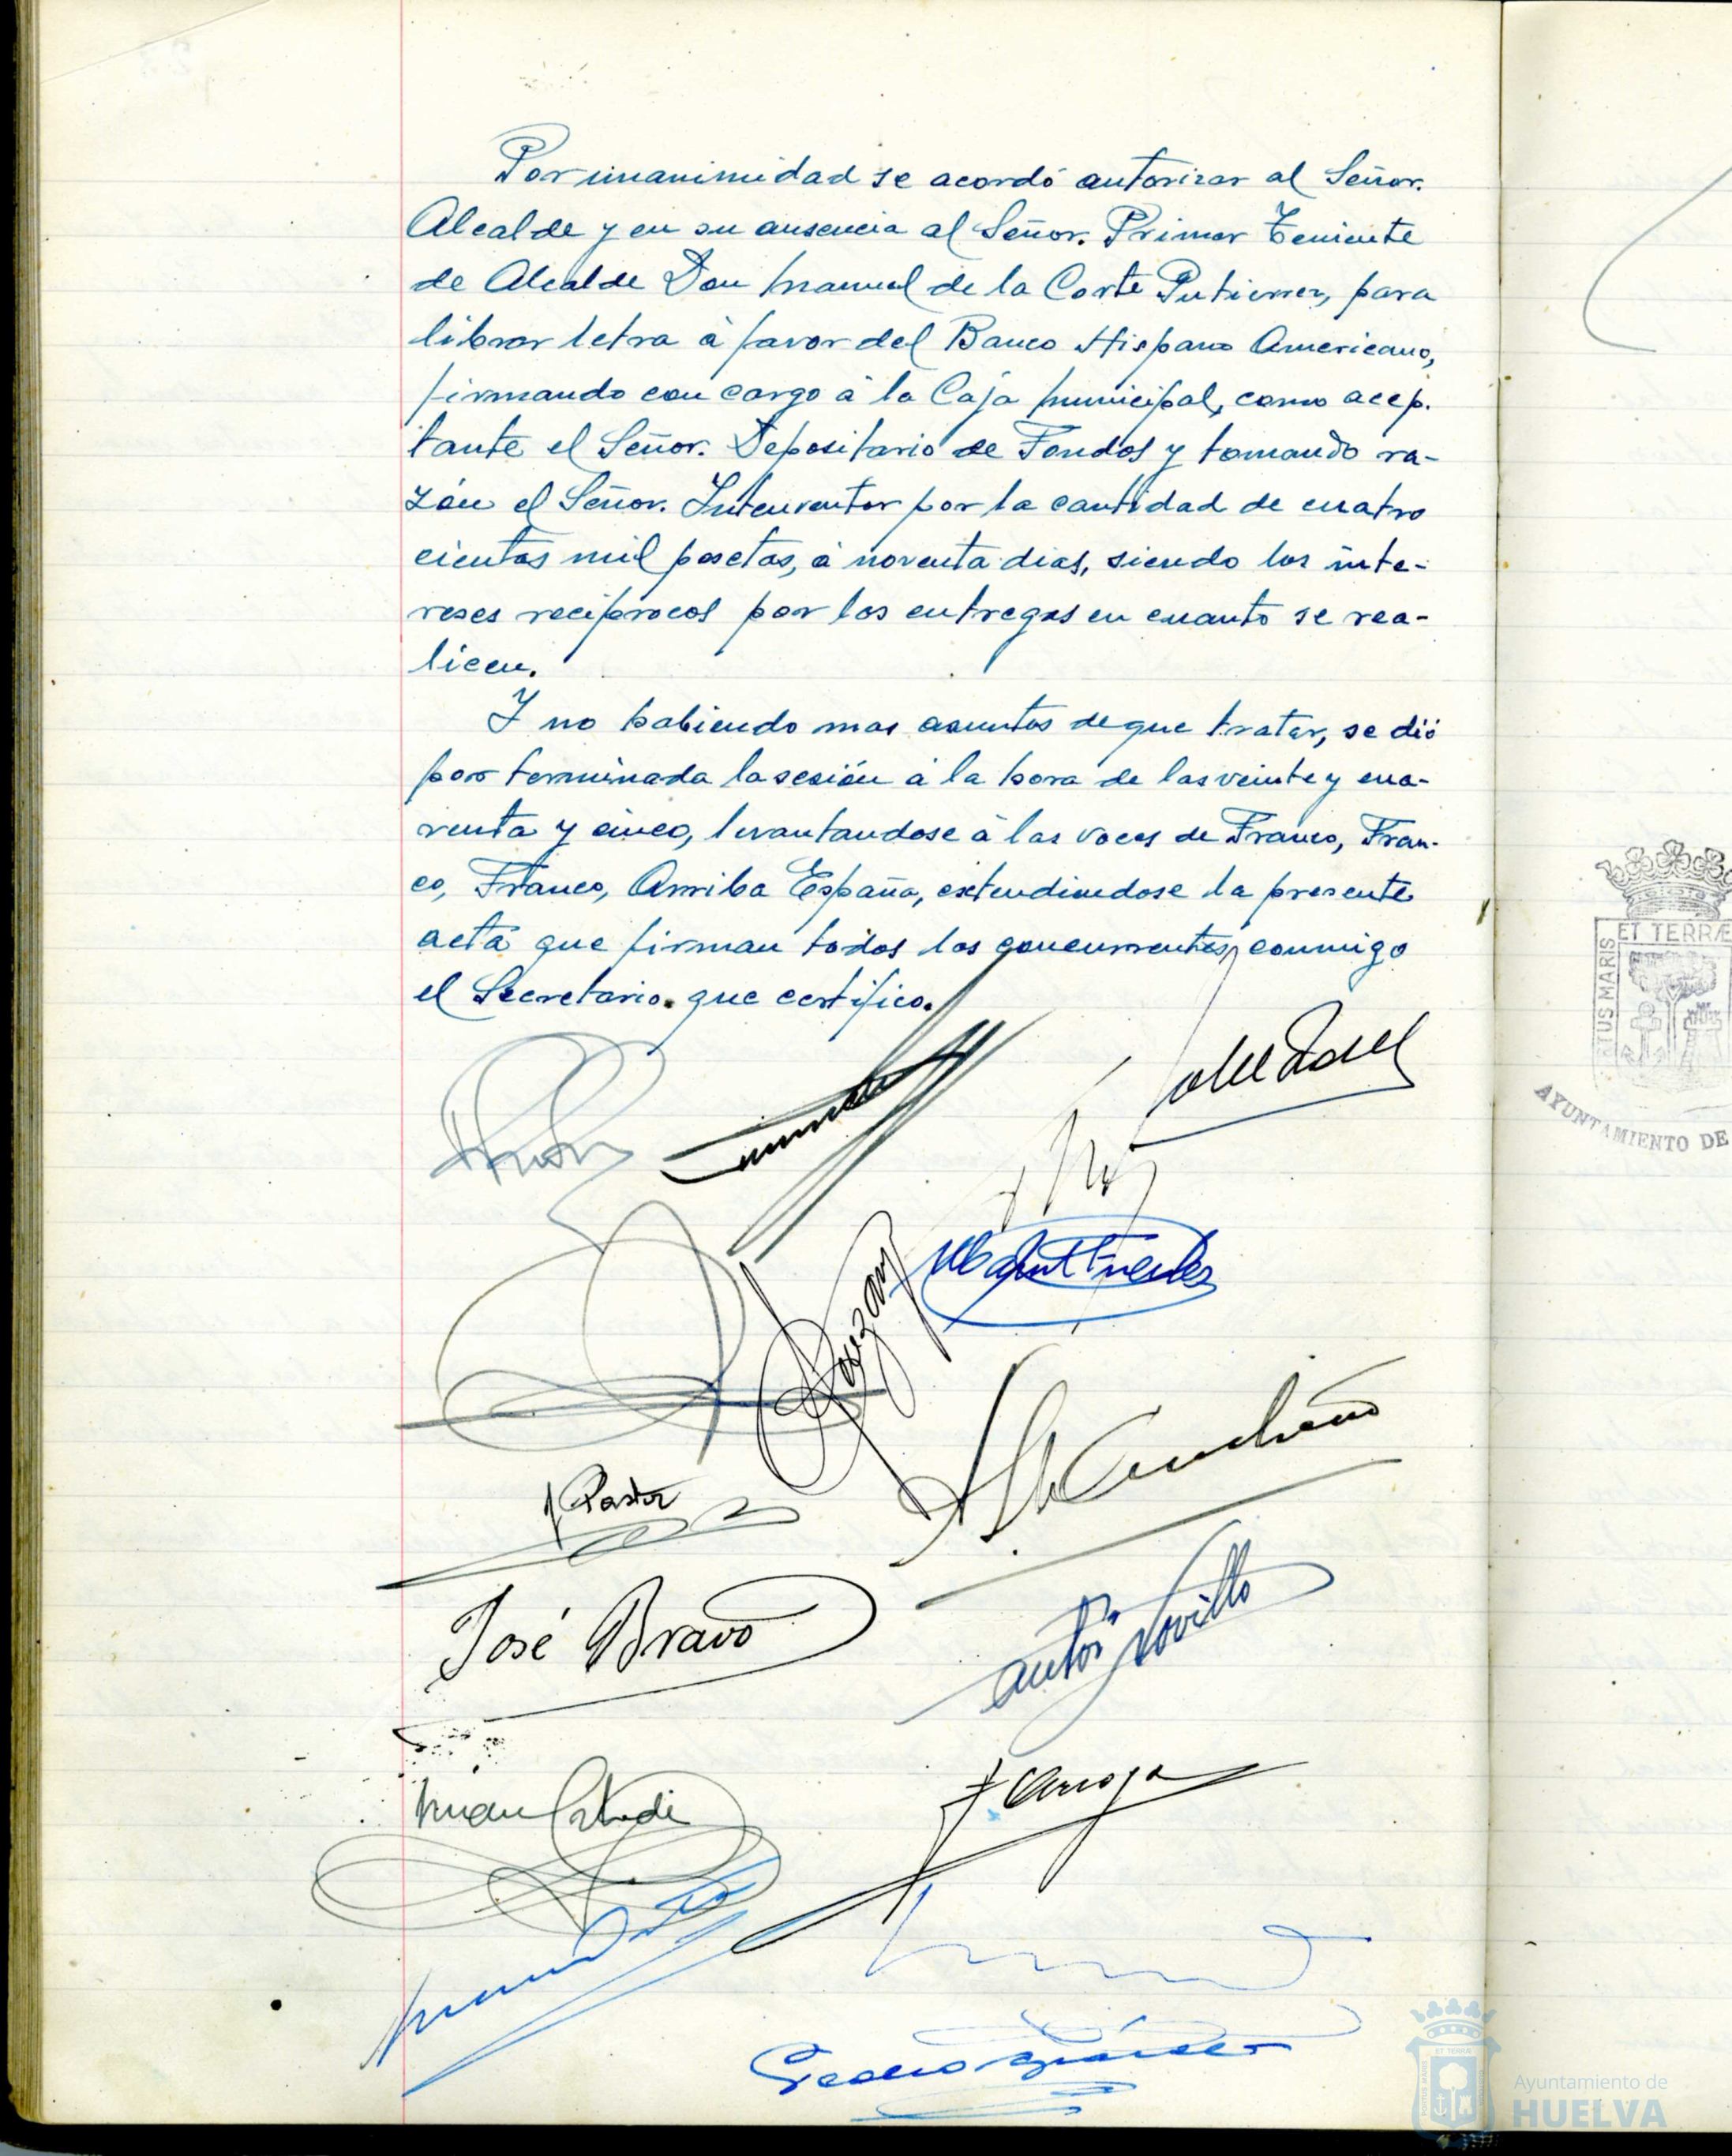 Por unanimidad se acordó autorizar al Señor.
Alcalde y en su ausencia al Señor. Primer Teniente
de Alcalde Don Manuel de la Corte Gutierrez, para
librar letra à favor del Banco Hispano Americano,
firmando con cargo à la Caja Municipal, como acep-
tante el Señor. Depositario de Fondos y tomando ra-
zón el Señor. Interventor por la cantidad de cuatro
cientas mil pesetas, à noventa dias, siendo los inte-
reses reciprocos por las entregas en cuanto se rea-
licen.
Y no habiendo mas asuntos de que tratar, se dió
por terminada la sesión à la hora de las veinte y cua-
renta y cinco, levantandose à las voces de Franco, Fran-
co, Franco, Arriba España, extendiendose la presente
acta que firman todos los concurrentes, conmigo
el Secretario. que certifico.
J. Pastor
José Bravo
ET TERRÆ
TUS MARIS
AYUNTAMIENTO DE
Ayuntamiento de
HUELVA